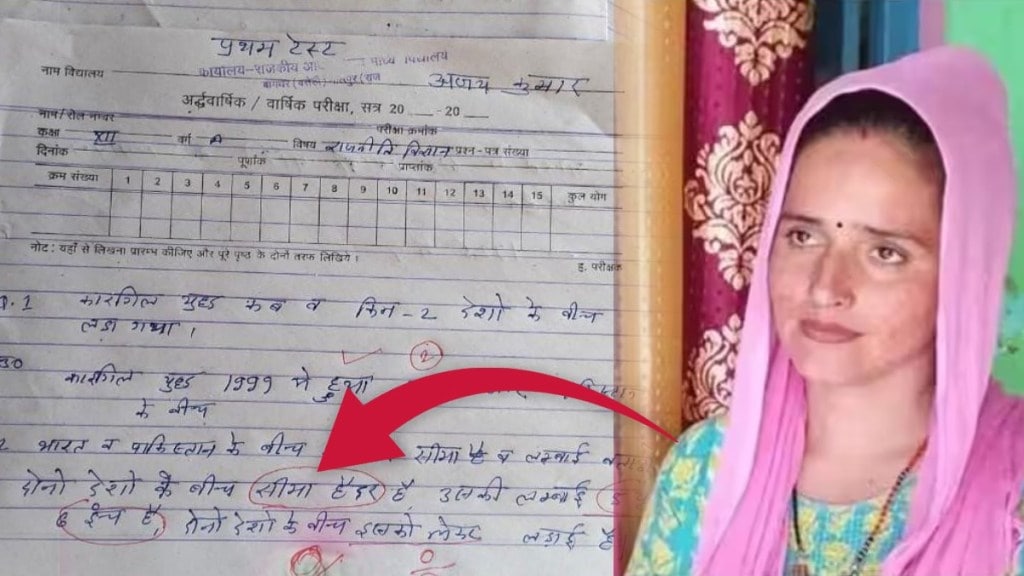 प्रथम टेस्ट
कार्यालय-राजकीय
नाम विद्यालय अजय कुमार
अर्द्धवार्षिक / वार्षिक परीक्षा, सत्र 20 -20
नाम/रोल नम्बर परीक्षा क्रमांक
कक्षा XII वर्ग A विषय राजनीति विज्ञान प्रश्न-पत्र संख्या
दिनांक पूर्णांक प्राप्तांक
क्रम संख्या 1 2 3 4 5 6 7 8 9 10 11 12 13 14 15 कुल योग
नोट : यहाँ से लिखना प्रारम्भ कीजिए और पूरे पृष्ठ के दोनो तरफ लिखिये।
ह. परीक्षक
Q.1 कारगिल युद्ध कब व किन-2 देशो के बीच
लडा गया।
2
कारगिल युद्ध 1999 मे हुआ
के बीच
2 भारत व पाकिस्तान के बीच सीमा है व लम्बाई
दोनो देशो के बीच सीमा हैदर है उसकी लम्बाई
6 ईन्च है, दोनो देशो के बीच इसको लेकर लड़ाई है
0